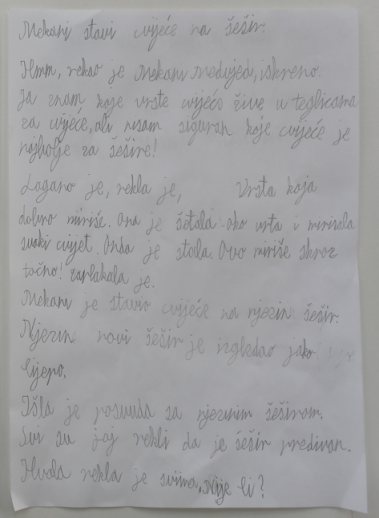 Mekani stavi cvijeće na šešir.
Hmm, rekao je Mekani Medvjedić, iskreno.
Ja znam koje vrste cvijeća žive u teglicama
za cvijeće, ali nisam siguran koje cvijeće je
najbolje za šešire!
Lagano je, rekla je, Vrsta koja
dobro miriše. Ona je šetala oko vrta i mirisala
svaki cvijet. Onda je stala. Ovo miriše skroz
točno! zaplakala je.
Mekani je stavio cvijeće na njezin šešir.
Njezin novi šešir je izgledao jako
lijepo.
Išla je posvuda sa njezinim šeširom.
Svi su joj rekli da je šešir predivan.
Hvala rekla je svima, Nije li?